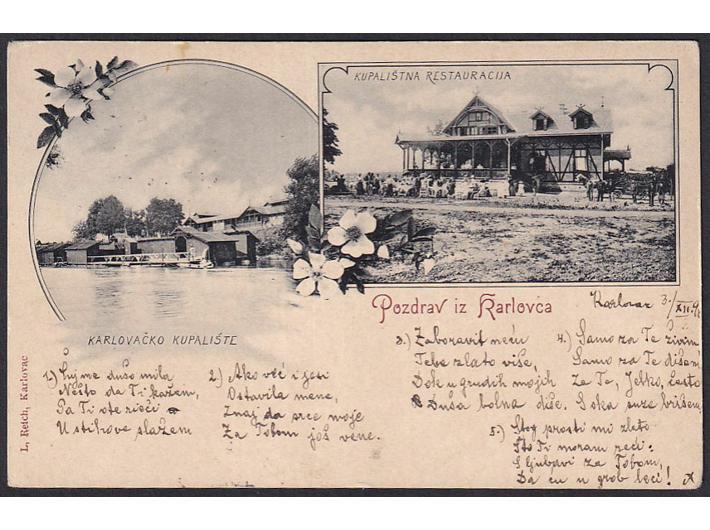 KUPALIŠTNA RESTAURACIJA
KARLOVAČKO KUPALIŠTE
Pozdrav iz Karlovca
L. Reich, Karlovac
Karlovac 3./XII.
1.) Čuj me dušo mila
Nešto da Ti kažem,
Pa Ti ote rieči
U stihove slažem
2.) Ako već i jesi
Ostavila mene,
Znaj da srce moje
Za Tobom još vene.
3.) Zaboravit neću
Tebe zlato više,
Dok u grudih mojih
Duša bolna diše.
4.) Samo za Te živim
Samo za Te dišem
Za Te, Jelko, često
I oka suze brišem.
5.) Stog prosti mi zlato
Što Ti moram reći:
S ljubavi za Tobom,
Da ću u grob leći!